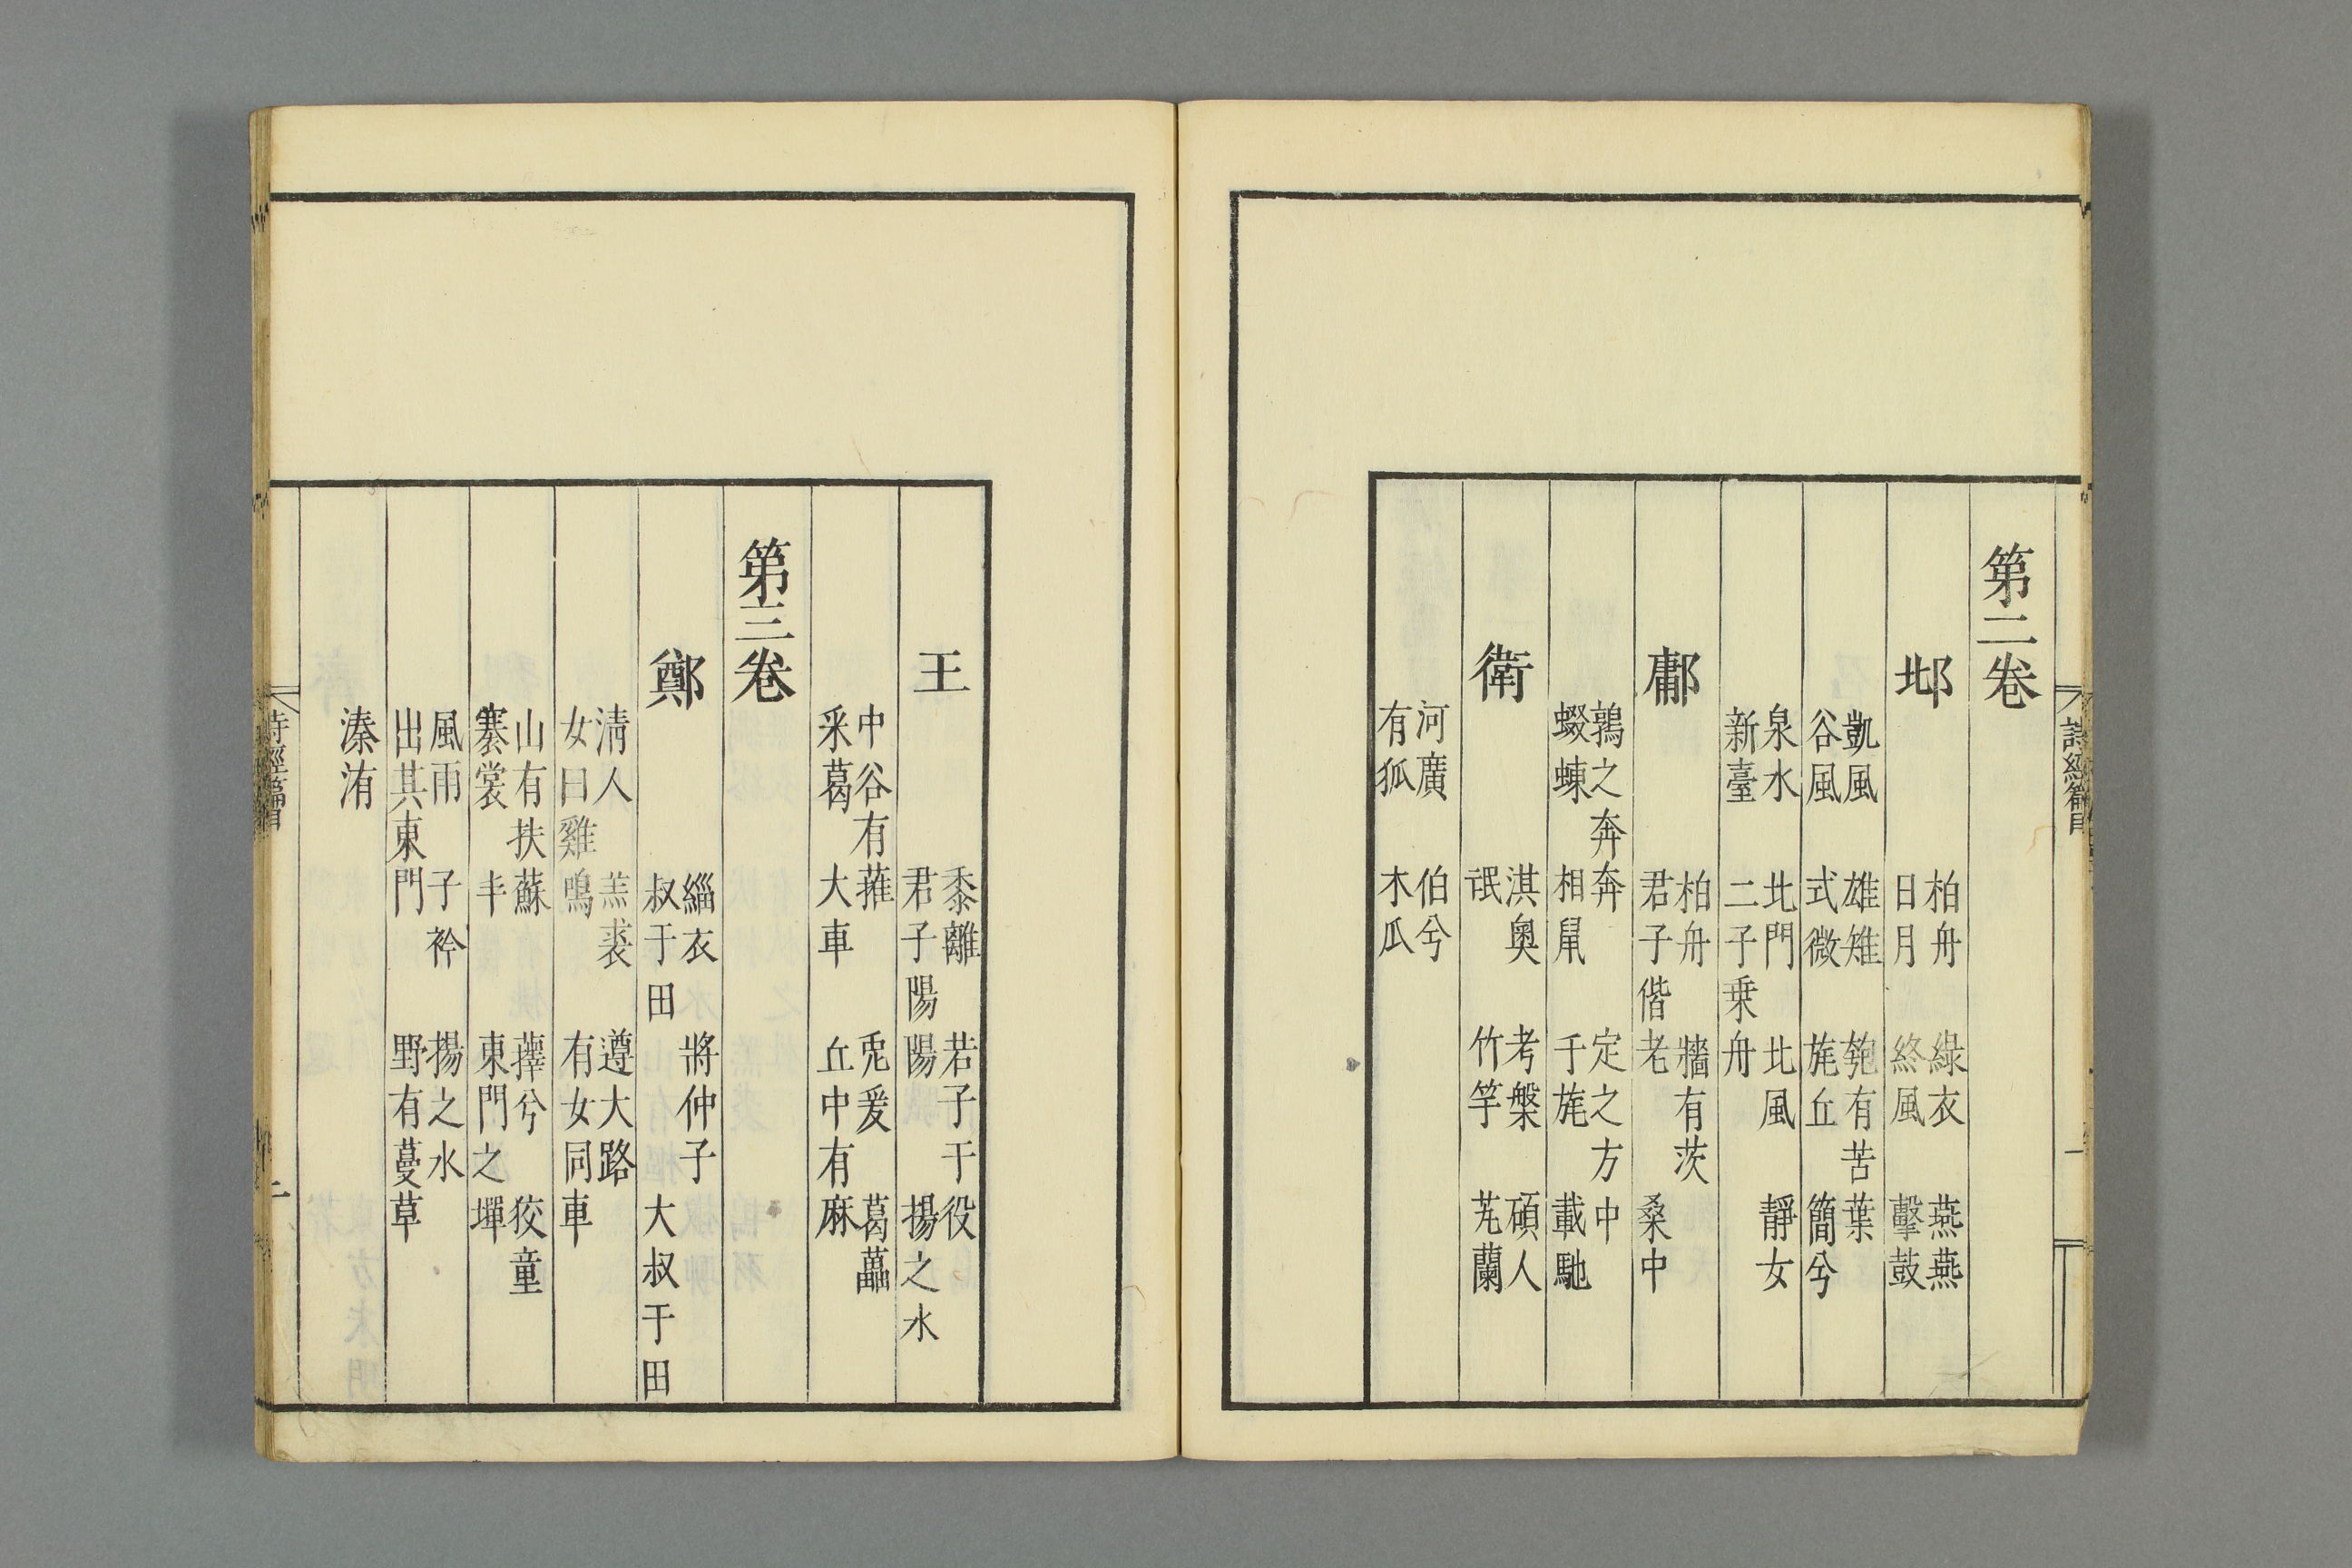 詩經篇目 一
第二卷
邶
柏舟 綠衣 燕燕
日月 終風 擊鼓
凱風 雄雉 匏有苦葉
谷風 式微 旄丘 簡兮
泉水 北門 北風 靜女
新臺 二子乗舟
鄘
柏舟 牆有茨
君子偕老 桑中
鶉之奔奔 定之方中
蝃蝀 相鼠 干旄 載馳
衛
淇奧 考槃 碩人
氓 竹竿 芄蘭
河廣 伯兮
有狐 木瓜
王
黍離 若子于役
君子陽陽 揚之水
中谷有蓷 兎爰 葛藟
采葛 大車 丘中有麻
第三卷
鄭
緇衣 將仲子
叔于田 大叔于田
清人 羔裘 遵大路
女曰雞鳴 有女同車
山有扶蘇 蘀兮 狡童
褰裳 丰 東門之墠
風雨 子衿 揚之水
出其東門 野有蔓草
溱洧
詩經篇目 二